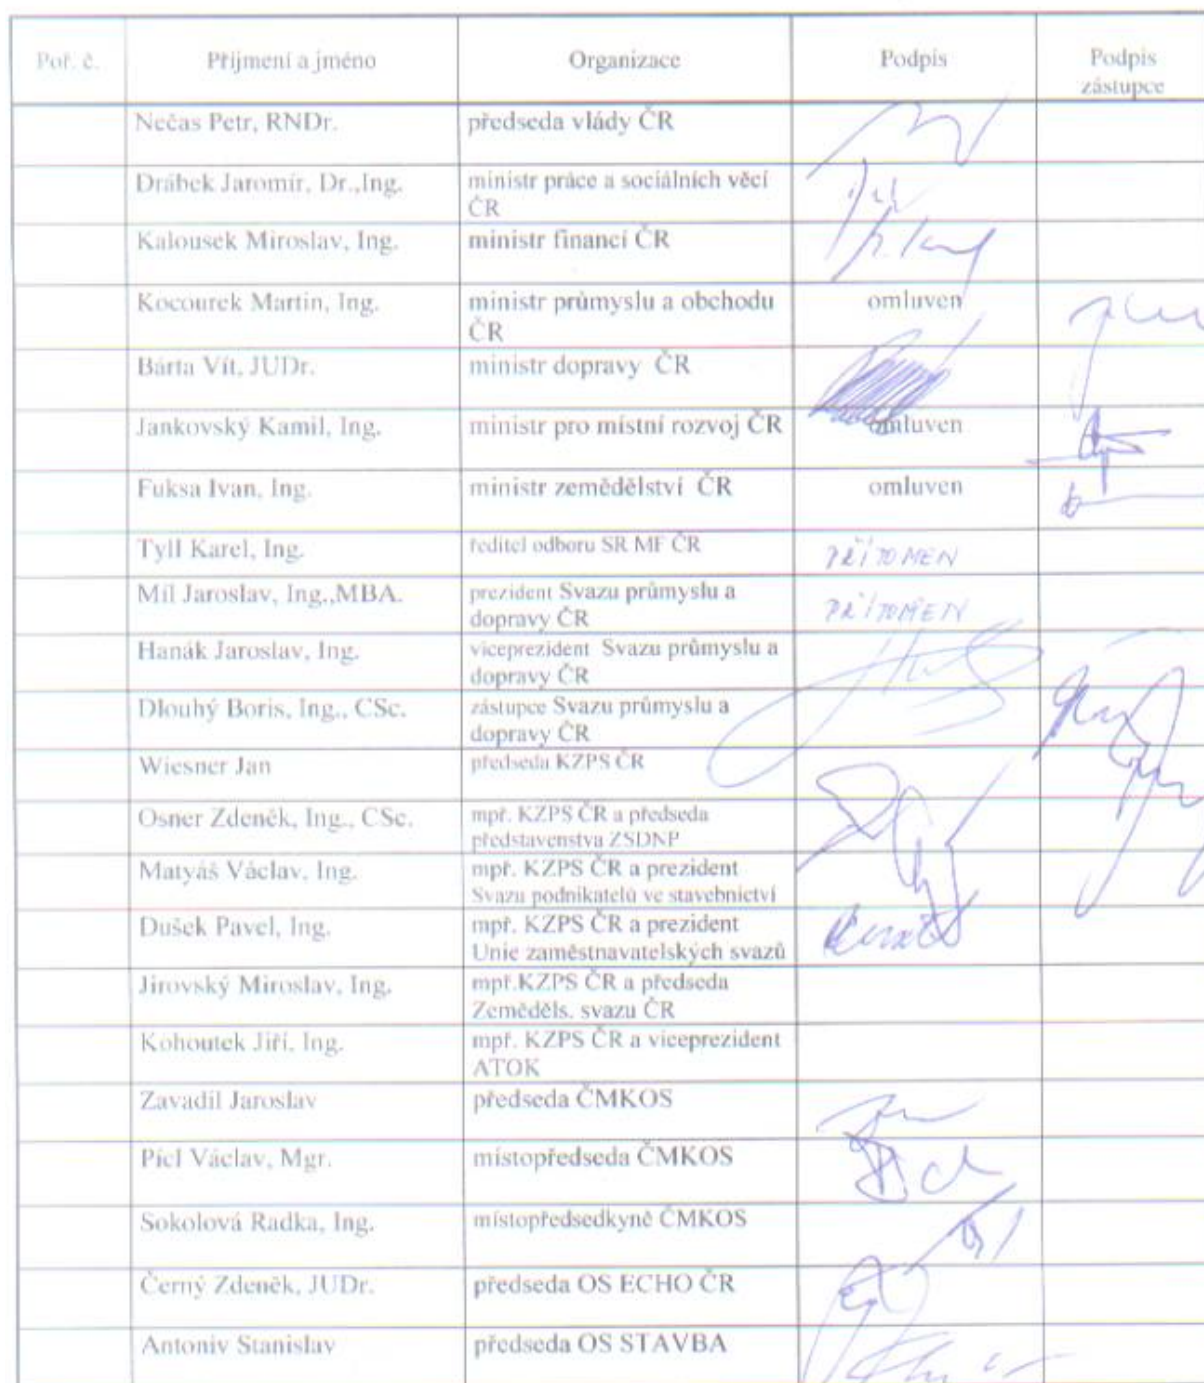 Poř. č. Příjmení a jméno Organizace Podpis Podpis
zástupce
Nečas Petr, RNDr. předseda vlády ČR
Drábek Jaromír, Dr.,Ing. ministr práce a sociálních věcí
ČR
Kalousek Miroslav, Ing. ministr financí ČR
Kocourek Martin, Ing. ministr průmyslu a obchodu omluven
ČR
Bárta Vít, JUDr. ministr dopravy ČR
Jankovský Kamil, Ing. ministr pro místní rozvoj ČR omluven
Fuksa Ivan, Ing. ministr zemědělství ČR omluven
Tyll Karel, Ing. ředitel odboru SR MF ČR PŘÍTOMEN
Míl Jaroslav, Ing.,MBA. prezident Svazu průmyslu a PŘÍTOMEN
dopravy ČR
Hanák Jaroslav, Ing. viceprezident Svazu průmyslu a
dopravy ČR
Dlouhý Boris, Ing., CSc. zástupce Svazu průmyslu a
dopravy ČR
Wiesner Jan předseda KZPS ČR
Osner Zdeněk, Ing., CSc. mpř. KZPS ČR a předseda
představenstva ZSDNP
Matyáš Václav, Ing. mpř. KZPS ČR a prezident
Svazu podnikatelů ve stavebnictví
Dušek Pavel, Ing. mpř. KZPS ČR a prezident
Unie zaměstnavatelských svazů
Jírovský Miroslav, Ing. mpř.KZPS ČR a předseda
Zeměděls. svazu ČR
Kohoutek Jiří, Ing. mpř. KZPS ČR a viceprezident
ATOK
Zavadil Jaroslav předseda ČMKOS
Pícl Václav, Mgr. místopředseda ČMKOS
Sokolová Radka, Ing. místopředsedkyně ČMKOS
Černý Zdeněk, JUDr. předseda OS ECHO ČR
Antoniv Stanislav předseda OS STAVBA